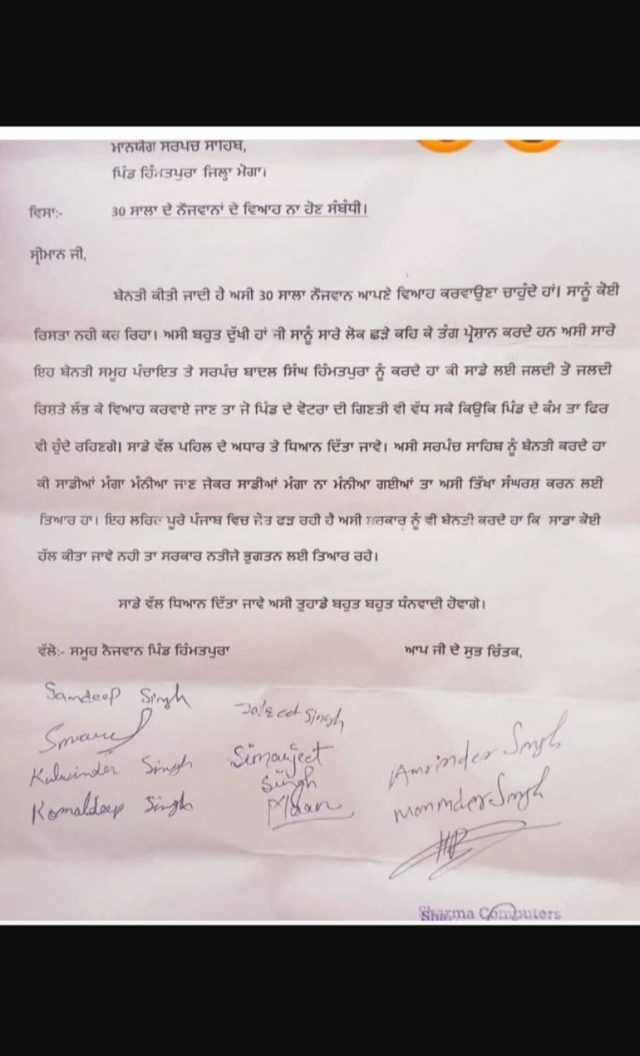 ਮਾਨਯੋਗ ਸਰਪੰਚ ਸਾਹਿਬ,
ਪਿੰਡ ਹਿੰਮਤਪੁਰਾ ਜਿਲ੍ਹਾ ਮੋਗਾ।
ਵਿਸਾ:- 30 ਸਾਲਾ ਦੇ ਨੌਜਵਾਨਾਂ ਦੇ ਵਿਆਹ ਨਾ ਹੋਣ ਸੰਬੰਧੀ।
ਸ੍ਰੀਮਾਨ ਜੀ,
ਬੇਨਤੀ ਕੀਤੀ ਜਾਦੀ ਹੈ ਅਸੀ 30 ਸਾਲਾ ਨੌਜਵਾਨ ਆਪਣੇ ਵਿਆਹ ਕਰਵਾਉਣਾ ਚਾਹੁੰਦੇ ਹਾਂ। ਸਾਨੂੰ ਕੋਈ
ਰਿਸਤਾ ਨਹੀ ਕਰ ਰਿਹਾ। ਅਸੀ ਬਹੁਤ ਦੁੱਖੀ ਹਾਂ ਜੀ ਸਾਨੂੰ ਸਾਰੇ ਲੋਕ ਛੜੇ ਕਹਿ ਕੇ ਤੰਗ ਪ੍ਰੇਸ਼ਾਨ ਕਰਦੇ ਹਨ ਅਸੀ ਸਾਰੇ
ਇਹ ਬੇਨਤੀ ਸਮੂਹ ਪੰਚਾਇਤ ਤੇ ਸਰਪੰਚ ਬਾਦਲ ਸਿੰਘ ਹਿੰਮਤਪੁਰਾ ਨੂੰ ਕਰਦੇ ਹਾ ਕੀ ਸਾਡੇ ਲਈ ਜਲਦੀ ਤੋਂ ਜਲਦੀ
ਰਿਸ਼ਤੇ ਲੱਭ ਕੇ ਵਿਆਹ ਕਰਵਾਏ ਜਾਣ ਤਾ ਜੋ ਪਿੰਡ ਦੇ ਵੋਟਰਾ ਦੀ ਗਿਣਤੀ ਵੀ ਵੱਧ ਸਕੇ ਕਿਉਕਿ ਪਿੰਡ ਦੇ ਕੰਮ ਤਾ ਫਿਰ
ਵੀ ਹੁੰਦੇ ਰਹਿਣਗੇ। ਸਾਡੇ ਵੱਲ ਪਹਿਲ ਦੇ ਅਧਾਰ ਤੇ ਧਿਆਨ ਦਿੱਤਾ ਜਾਵੇ। ਅਸੀ ਸਰਪੰਚ ਸਾਹਿਬ ਨੂੰ ਬੇਨਤੀ ਕਰਦੇ ਹਾ
ਕੀ ਸਾਡੀਆਂ ਮੰਗਾ ਮੰਨੀਆ ਜਾਣ ਜੇਕਰ ਸਾਡੀਆਂ ਮੰਗਾ ਨਾ ਮੰਨੀਆ ਗਈਆਂ ਤਾ ਅਸੀ ਤਿੱਖਾ ਸੰਘਰਸ਼ ਕਰਨ ਲਈ
ਤਿਆਰ ਹਾ। ਇਹ ਲਹਿਰ ਪੂਰੇ ਪੰਜਾਬ ਵਿਚ ਜੋਰ ਫੜ ਰਹੀ ਹੈ ਅਸੀ ਸਰਕਾਰ ਨੂੰ ਵੀ ਬੇਨਤੀ ਕਰਦੇ ਹਾ ਕਿ ਸਾਡਾ ਕੋਈ
ਹੱਲ ਕੀਤਾ ਜਾਵੇ ਨਹੀ ਤਾ ਸਰਕਾਰ ਨਤੀਜੇ ਭੁਗਤਨ ਲਈ ਤਿਆਰ ਰਹੇ।
ਸਾਡੇ ਵੱਲ ਧਿਆਨ ਦਿੱਤਾ ਜਾਵੇ ਅਸੀ ਤੁਹਾਡੇ ਬਹੁਤ ਬਹੁਤ ਧੰਨਵਾਦੀ ਹੋਵਾਗੇ।
ਵੱਲੋ:- ਸਮੂਹ ਨੋਜਵਾਨ ਪਿੰਡ ਹਿੰਮਤਪੁਰਾ ਆਪ ਜੀ ਦੇ ਸੁਭ ਚਿੰਤਕ,
Sandeep Singh
Singh
Kulwinder Singh
Komaldeep Singh
Simarjeet
Singh
Maan
Amrinder Singh
Maninder Singh
Sharma Computers